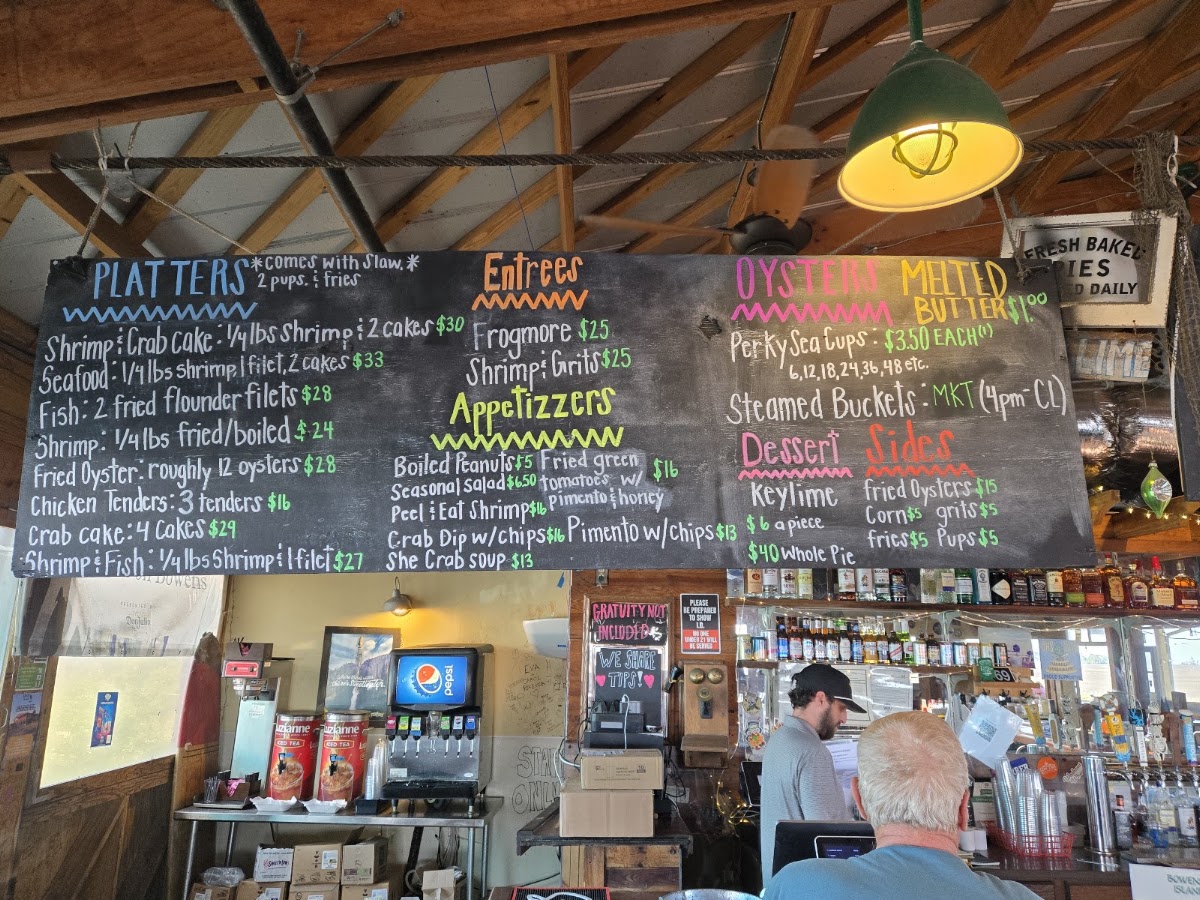 PLATTERS *comes with slaw,*
2 pups & fries
Shrimp & Crab cake: 1/4 lbs shrimp & 2 cakes $30
Seafood: 1/4 lbs shrimp, 1 filet, 2 cakes $33
Fish: 2 fried flounder filets $28
Shrimp: 1/4 lbs fried/boiled $24
Fried Oyster: roughly 12 oysters $28
Chicken Tenders: 3 tenders $16
Crab cake: 4 cakes $29
Shrimp & Fish: 1/4 lbs Shrimp & 1 filet $27
Entrees
Frogmore $25
Shrimp & Grits $25
Appetizzers
Boiled Peanuts $5
Seasonal salad $650
Peel & Eat Shrimp $16
Fried green
tomatoes w/
Pimento & honey
$16
Crab Dip w/chips $16
Pimento w/chips $13
She Crab soup $13
OYSTERS
Perky Sea Cups: $3.50 EACH(1)
6, 12, 18, 24, 36, 48 etc.
Steamed Buckets: MKT (4pm-CL)
MELTED
BUTTER $1.00
Dessert
Keylime
$6 a piece
$40 whole Pie
Sides
fried Oysters $15
Corn $5 grits $5
fries $5 Pups $5
FRESH BAKED
PIES
DAILY
pepsi
LUZIANNE
ICED TEA
LUZIANNE
ICED TEA
GRATUITY NOT
INCLUDED
WE SHARE
TIPS!
PLEASE
BE PREPARED
TO SHOW
I.D.
NO ONE
UNDER 21 WILL
BE SERVED
69
BOWENS
ISLAND